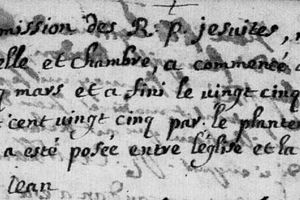 mission des R. p. jesuites,
elle et chambre a commencé
q mars et a fini le vingt cinq
cent vingt cinq par le planter
a esté posée entre l'église et la
jean